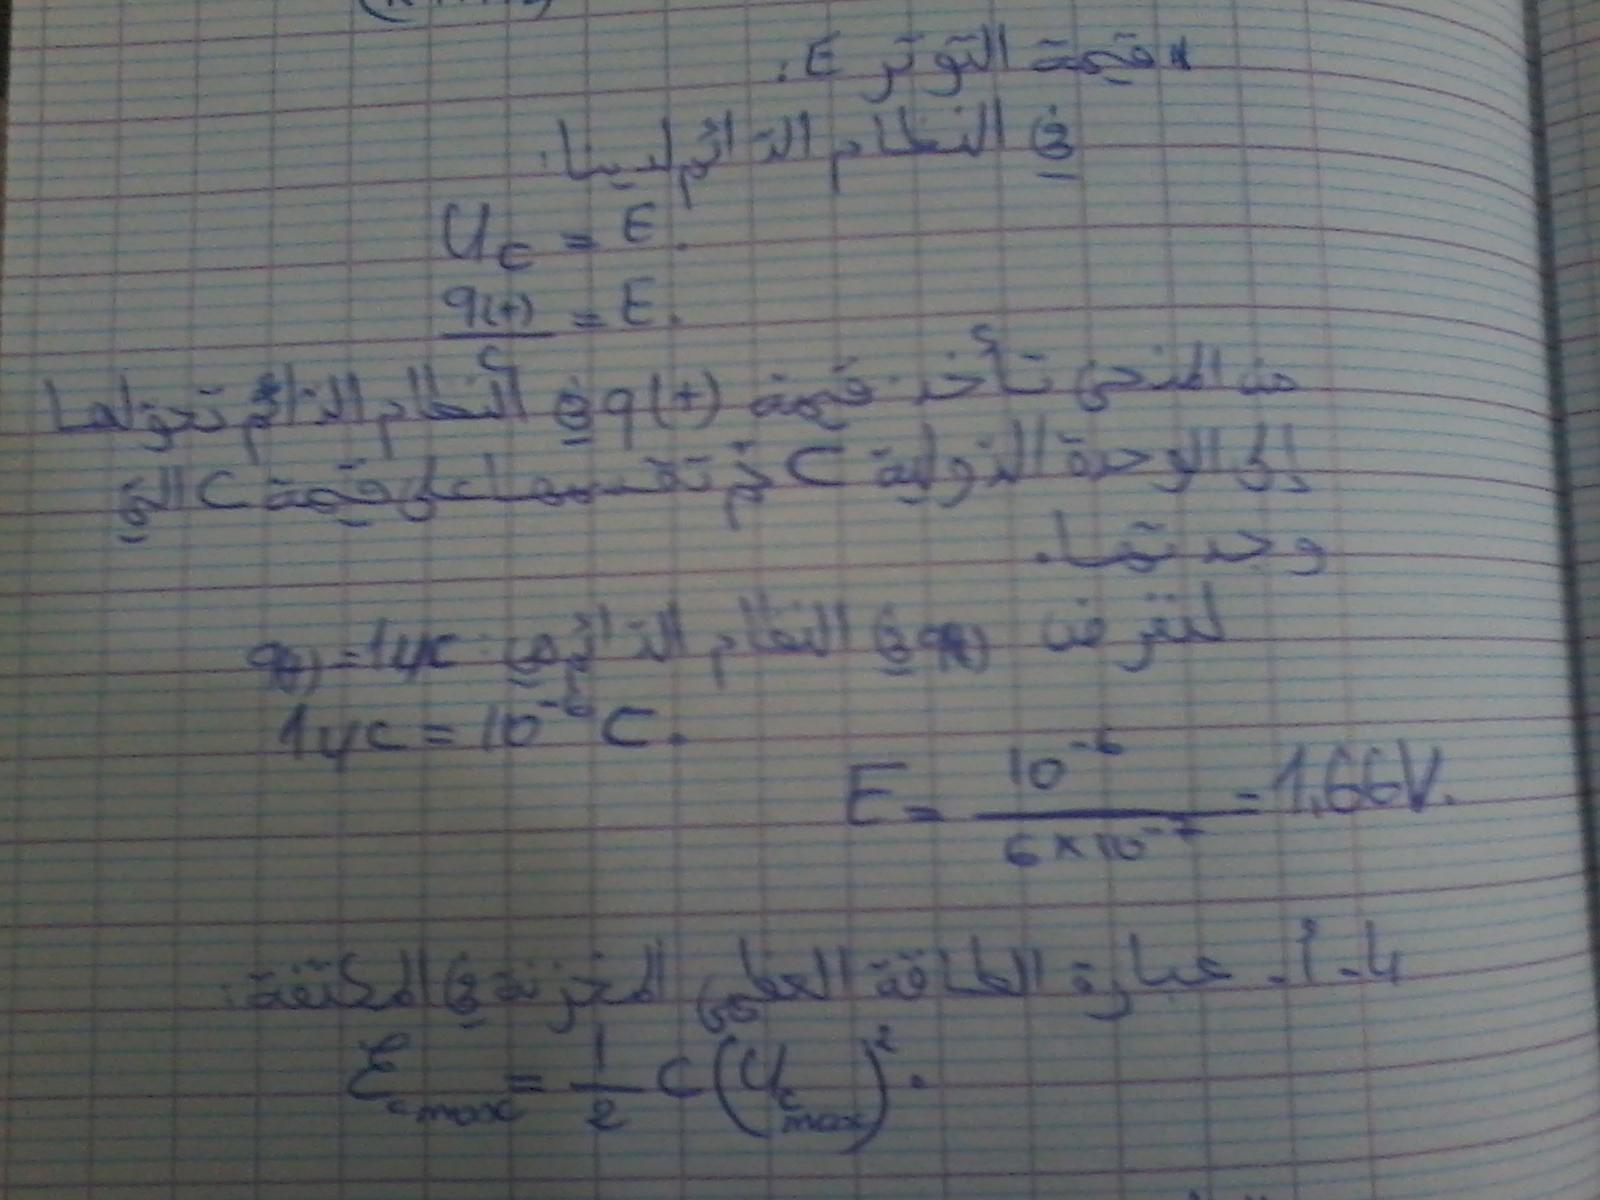 * قيمة التوتر E:
في النظام الدائم لدينا:
Uc = E.
q(t)/C = E.
من المنحنى نأخذ قيمة q(t) في النظام الدائم نحولها
إلى الوحدة الدولية C ثم نقسمها على قيمة C التي
وجدناها.
لنفرض q(t) في النظام الدائم هي q(t)=1µc
1µc = 10⁻⁶ C.
E = 10⁻⁶ / 6×10⁻⁷ = 1,66V.
4-أ- عبارة الطاقة العظمى المخزنة في المكثفة:
Ec max = 1/2 C (Uc max)².